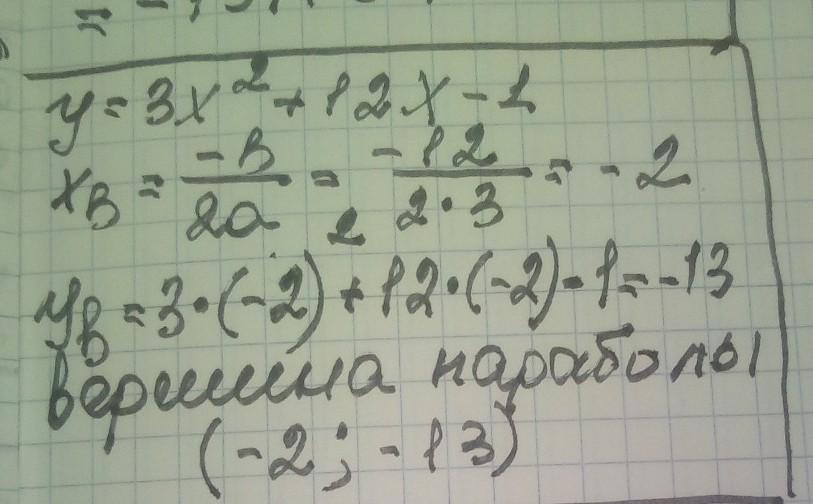 y = 3x² + 12x - 1
xв = -в/2a = -12/2·3 = -2
yв = 3·(-2)² + 12·(-2) - 1 = -13
вершина параболы
(-2; -13)